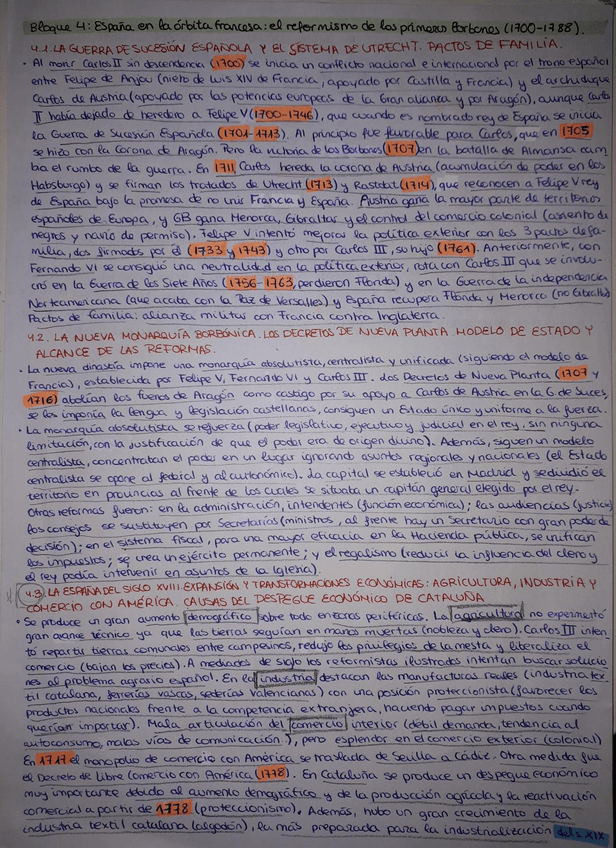 Bloque 4: España en la órbita francesa: el reformismo de los primeros Borbones (1700-1788).
4.1. LA GUERRA DE SUCESIÓN ESPAÑOLA Y EL SISTEMA DE UTRECHT. PACTOS DE FAMILIA.
· Al morir Carlos II sin descendencia (1700) se inicia un conflicto nacional e internacional por el trono español
entre Felipe de Anjou (nieto de Luis XIV de Francia, apoyado por Castilla y Francia) y el archiduque
Carlos de Austria (apoyado por las potencias europeas de la Gran alianza y por Aragón), aunque Carlos
II había dejado de heredero a Felipe V (1700-1746), que cuando es nombrado rey de España se inicia
la Guerra de Sucesión Española (1701-1713). Al principio fue favorable para Carlos, que en 1705
se hizo con la Corona de Aragón. Pero la victoria de los Borbones (1707) en la batalla de Almansa cam
bia el rumbo de la guerra. En 1711 Carlos hereda la corona de Austria (acumulación de poder en los
Habsburgo) y se firman los tratados de Utrecht (1713) y Rastdat (1714), que reconocen a Felipe V rey
de España bajo la promesa de no unir Francia y España. Austria gana la mayor parte de territorios
españoles de Europa, y GB gana Menorca, Gibraltar y el control del comercio colonial (asiento de
negros y navío de permiso). Felipe V intentó mejorar la política exterior con los 3 pactos de fa-
milia, dos firmados por él (1733 y 1743) y otro por Carlos III, su hijo (1761). Anteriormente, con
Fernando VI se consiguió una neutralidad en la política exterior, rota con Carlos III que se involu-
cró en la Guerra de los Siete Años (1756-1763, perdieron Florida) y en la Guerra de la independencia
Norteamericana (que acaba con la Paz de Versalles) y España recupera Florida y Menorca (no Gibraltar)
Pactos de familia: alianza militar con Francia contra Inglaterra.
4.2. LA NUEVA MONARQUÍA BORBÓNICA. LOS DECRETOS DE NUEVA PLANTA. MODELO DE ESTADO Y
ALCANCE DE LAS REFORMAS.
· La nueva dinastía impone una monarquía absolutista, centralista y unificada (siguiendo el modelo de
Francia), establecida por Felipe V, Fernando VI y Carlos III. Los Decretos de Nueva Planta (1707 y
1716) abolían los fueros de Aragón como castigo por su apoyo a Carlos de Austria en la G. de Suces,
se les imponía la lengua y legislación castellanas, consiguen un Estado único y uniforme a la fuerza.
· La monarquía absolutista se refuerza (poder legislativo, ejecutivo y judicial en el rey, sin ninguna
limitación, con la justificación de que el poder era de origen divino). Además, siguen un modelo
centralista, concentraban el poder en un lugar ignorando asuntos regionales y nacionales (el Estado
centralista se opone al federal y al autonómico). La capital se estableció en Madrid y se dividió el
territorio en provincias al frente de los cuales se situaba un capitán general elegido por el rey.
Otras reformas fueron: en la administración, intendentes (función económica); las audiencias (justicia)
los consejos se sustituyen por Secretarías (ministros, al frente hay un Secretario con gran poder de
decisión); en el sistema fiscal, para una mayor eficacia en la Hacienda pública, se unifican
los impuestos; se crea un ejército permanente; y el regalismo (reducir la influencia del clero y
el rey podía intervenir en asuntos de la Iglesia).
4.3. LA ESPAÑA DEL SIGLO XVIII. EXPANSIÓN Y TRANSFORMACIONES ECONÓMICAS: AGRICULTURA, INDUSTRIA Y
COMERCIO CON AMÉRICA. CAUSAS DEL DESPEGUE ECONÓMICO DE CATALUÑA
· Se produce un gran aumento demográfico sobre todo en zonas periféricas. La agricultura no experimentó
gran avance técnico ya que las tierras seguían en manos muertas (nobleza y clero). Carlos III inten
tó repartir tierras comunales entre campesinos, redujo los privilegios de la mesta y liberaliza el
comercio (bajan los precios). A mediados de siglo los reformistas ilustrados intentan buscar solucio
nes al problema agrario español. En la industria destacan las manufacturas reales (industria tex-
til catalana, ferrerías vascas, sederías valencianas) con una posición proteccionista (favorecer los
productos nacionales frente a la competencia extranjera, haciendo pagar impuestos cuando
querían importar). Mala articulación del comercio interior (débil demanda, tendencia al
autoconsumo, malas vías de comunicación), pero esplendor en el comercio exterior (colonial)
En 1717 el monopolio de comercio con América se traslada de Sevilla a Cádiz. Otra medida fue
el Decreto de Libre Comercio con América (1778). En Cataluña se produce un despegue económico
muy importante debido al aumento demográfico y de la producción agrícola y la reactivación
comercial a partir de 1778 (proteccionismo). Además, hubo un gran crecimiento de la
industria textil catalana (algodón), la más preparada para la industrialización del s. XIX